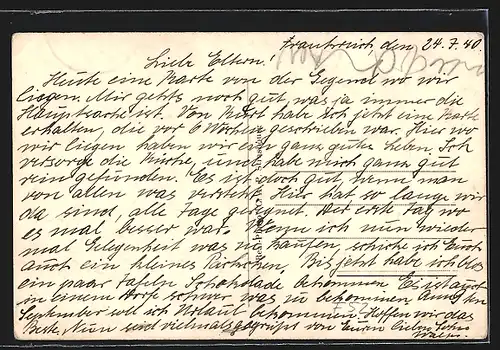 Frankreich, den 24.7.40
Liebe Eltern.
Heute eine Karte von der Gegend wo wir
liegen. Mir gehts noch gut, was ja immer die
Hauptsache ist. Von Kurt habe ich jetzt eine Karte
erhalten, die vor 6 Wochen geschrieben war. Hier wo
wir liegen haben wir ein ganz gutes Leben. Ich
versorge die Küche, und habe mich ganz gut
rein gefunden. Es ist doch gut, wenn man
von allen was versteht. Hier hat so lange wir
da sind, alle Tage geregnet. Der erste Tag wo
es mal besser war. Wenn ich nun wieder
mal Gelegenheit was zu kaufen, schicke ich Euch
auch ein kleines Päckchen. Bis jetzt habe ich blos
ein paar Tafeln Schokolade bekommen. Es ist auch
in einem Dorfe schwer was zu bekommen. Anfang
September soll ich Urlaub bekommen. Hoffen wir das
Beste. Nun seid vielmals gegrüßt von Euern lieben Sohn